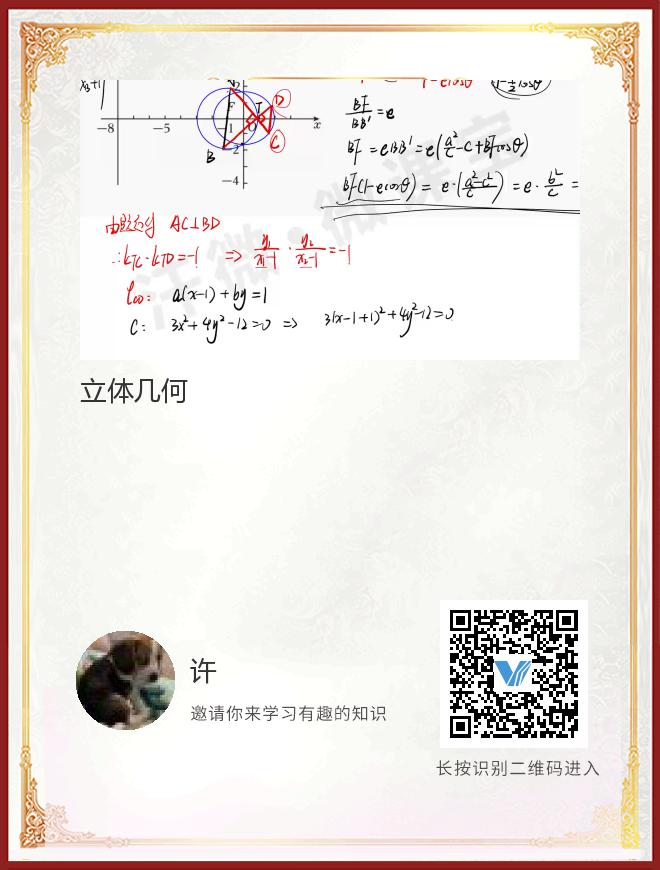 x₃+1
1-ecosθ
BF/BB' = e
BF = eBB' = e(a²/c - c + BFcosθ)
BF(1-ecosθ) = e·(a²-c²/c) = e·b²/c =
-8 -5 -1 0 x
F T D
B C
-2
-4
由题可得 AC⊥BD
∴k_TC·k_TD=-1 ⇒ y₁/x₁-1 · y₂/x₂-1 = -1
l_CD: a(x-1)+by=1
C: 3x²+4y²-12=0 ⇒ 3(x-1+1)²+4y²-12=0
立体几何
许
邀请你来学习有趣的知识
长按识别二维码进入